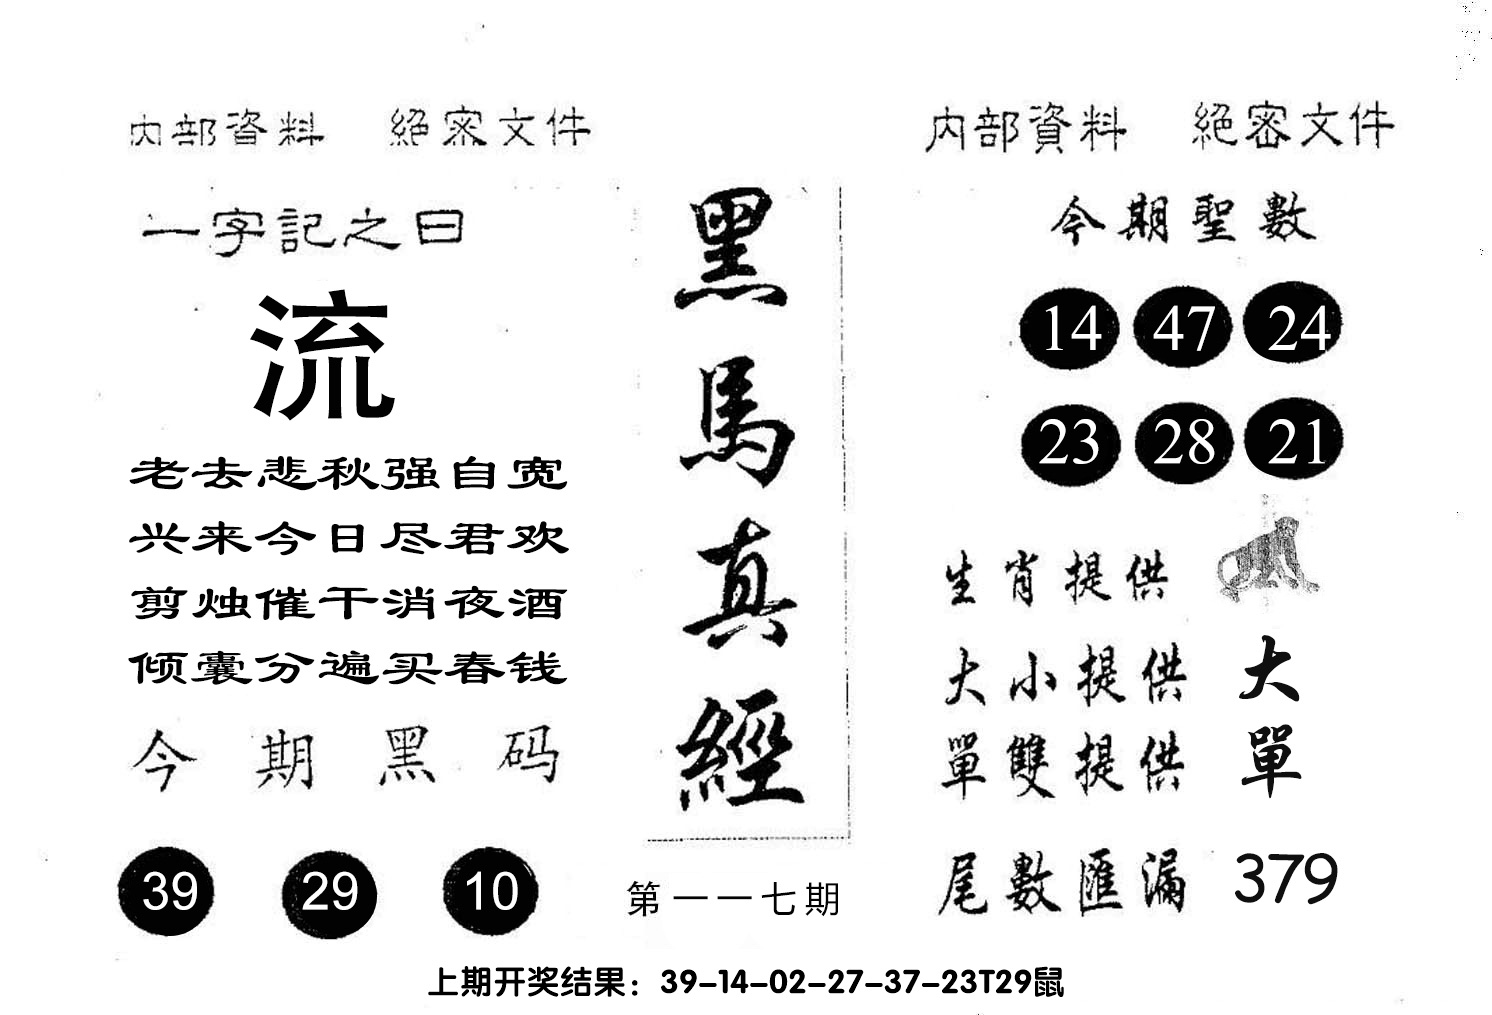 内部資料 絕密文件
一字記之曰
流
老去悲秋强自宽
兴来今日尽君欢
剪烛催干消夜酒
倾囊分遍买春钱
今期黑码
39 29 10
黑馬真經
第一一七期
内部資料 絕密文件
今期聖數
14 47 24
23 28 21
生肖提供
大小提供 大
單雙提供 單
尾數匯漏 379
上期开奖结果：39-14-02-27-37-23T29鼠